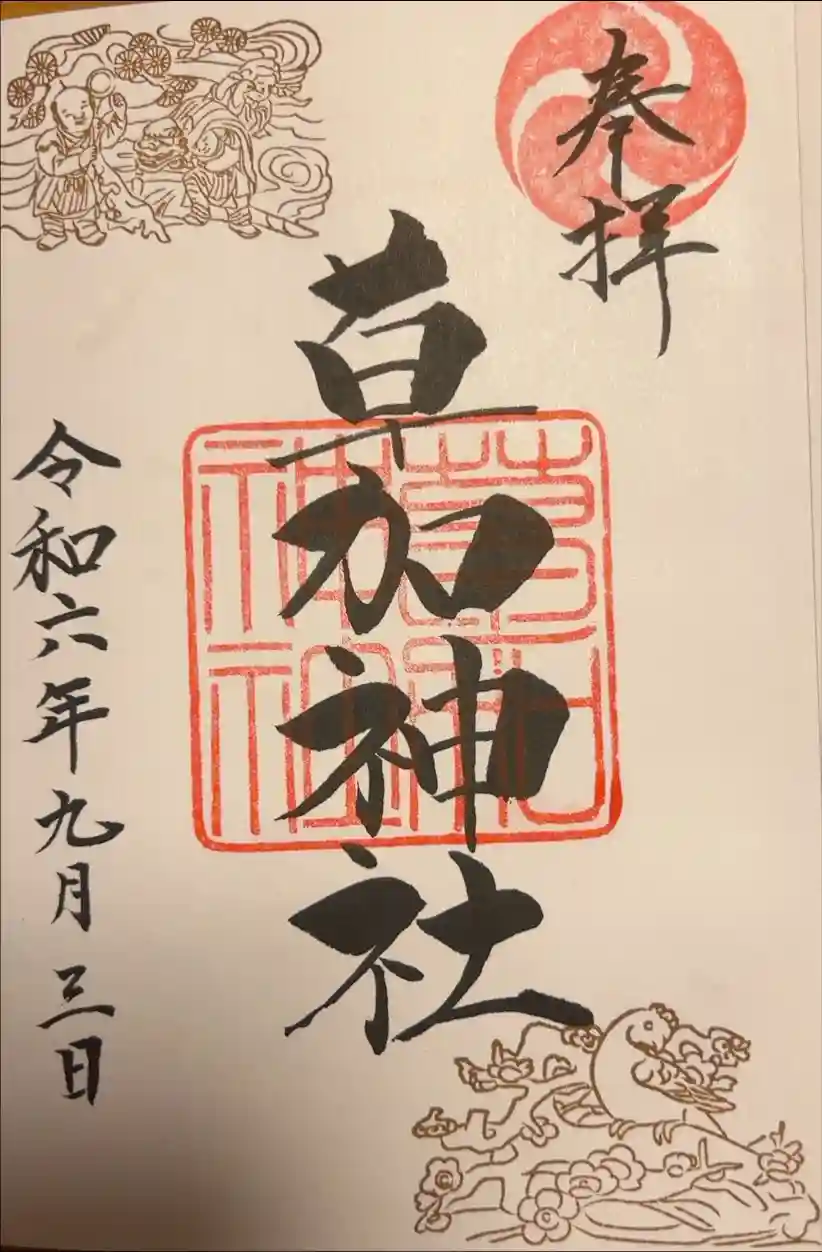 奉拝
草加神社
草加神社
令和六年九月三日